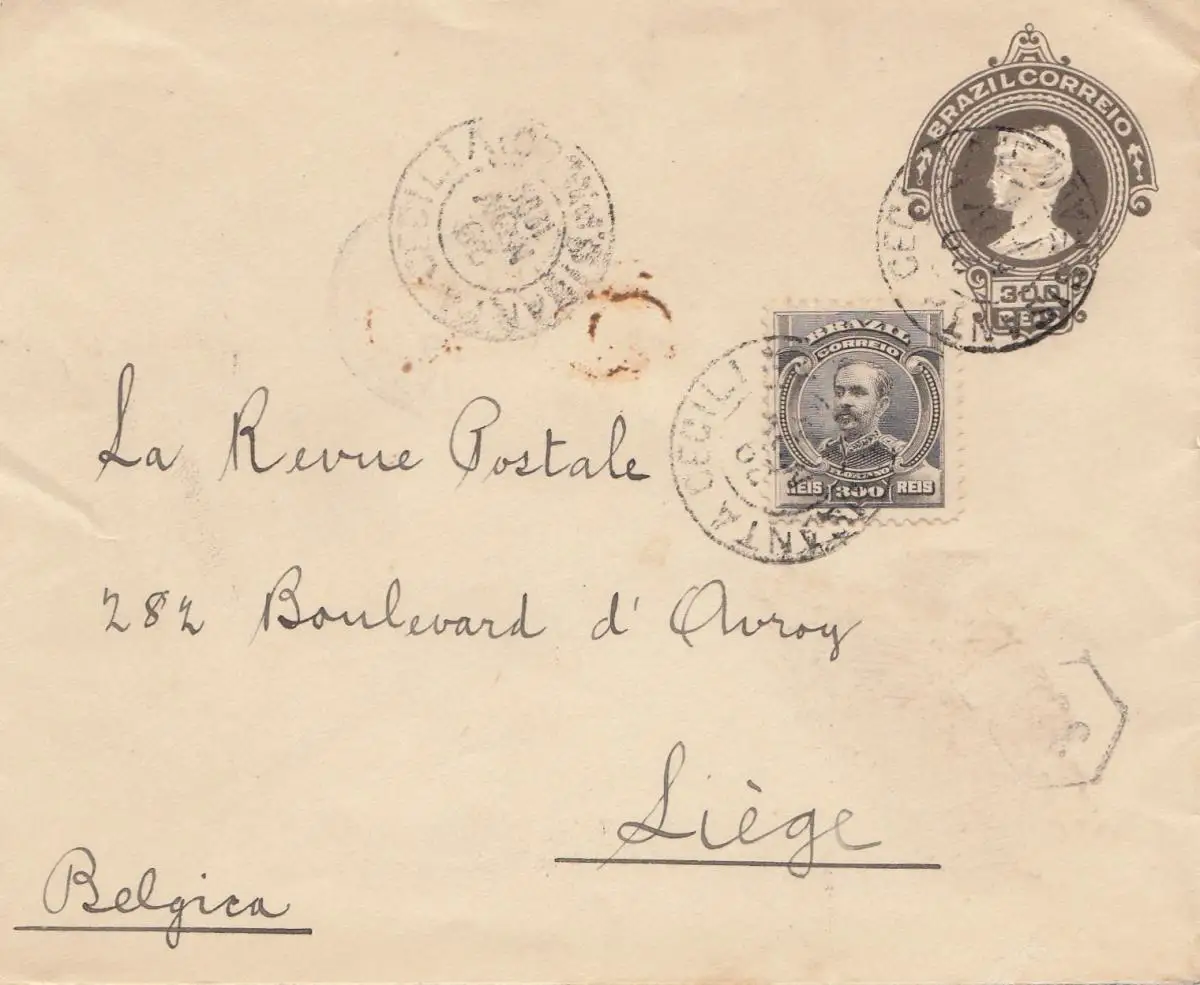 BRAZIL CORREIO
300
REIS
SANTA CECILIA
BRAZIL
CORREIO
FLORIANO
REIS 300 REIS
SANTA CECILI
La Revue Postale
282 Boulevard d' Avroy
Liège
Belgica